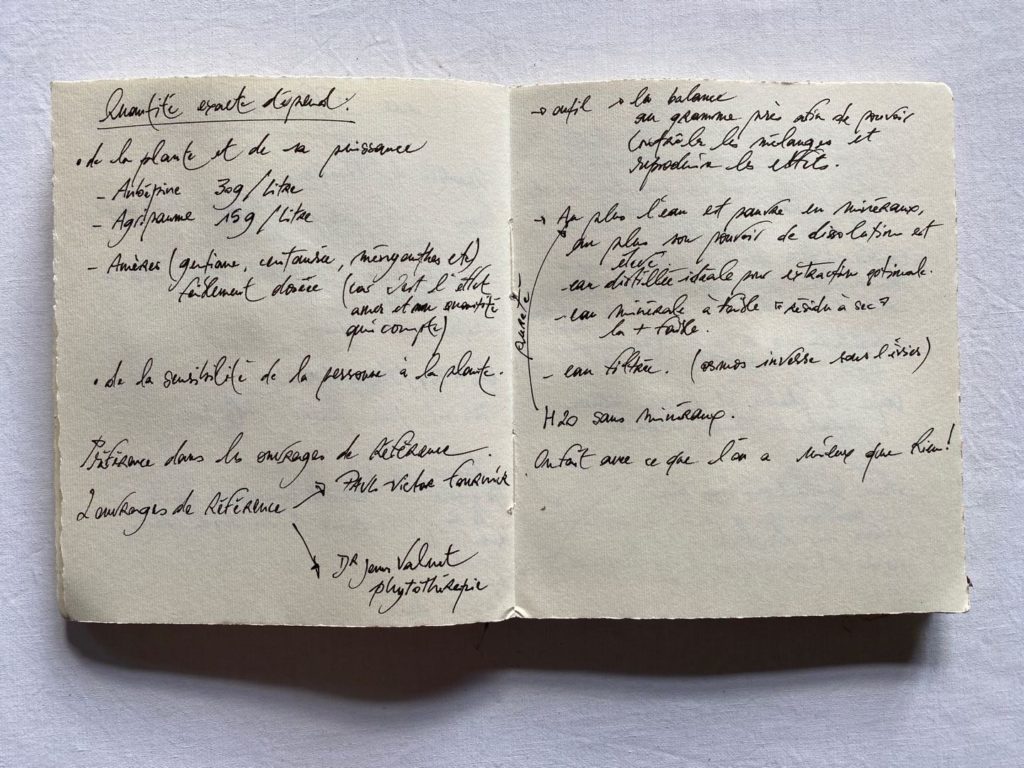 Quantité exacte dépend.
• de la plante et de sa puissance
- Aubépine 30g/Litre
- Agripaume 15g/Litre
- Amères (gentiane, centaurée, ményanthes etc)
faiblement dosées (car c'est l'effet
amer et non quantité
qui compte)
• de la sensibilité de la personne à la plante.
Référence dans les ouvrages de Référence.
2 ouvrages de Référence → PAUL Victor Fournier
→ DR Jean Valnet
phytothérapie
→ outil → la balance
au gramme près afin de pouvoir
contrôler les mélanges et
reproduire les effets.
→ Au plus l'eau est pauvre en minéraux,
au plus son pouvoir de dissolution est
élevé.
- eau distillée idéale pour extraction optimale.
- eau minérale à faible "résidu à sec"
la + faible.
- eau filtrée. (osmos inverse sous l'évier)
pureté
H2O sans minéraux.
On fait avec ce que l'on a mieux que Rien!